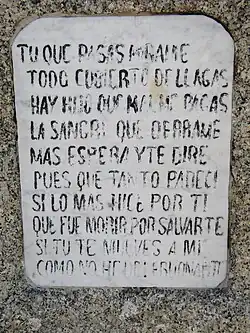 TU QUE PASAS MIRAME
TODO CUBIERTO DE LLAGAS
HAY HIJO QUE MAL ME PAGAS
LA SANGRE QUE DERRAME
MAS ESPERA Y TE DIRE
PUES QUE TANTO PADECI
SI LO MAS HICE POR TI
QUE FUE MORIR POR SALVARTE
SI TU TE VUELVES A MI
COMO NO HE DE